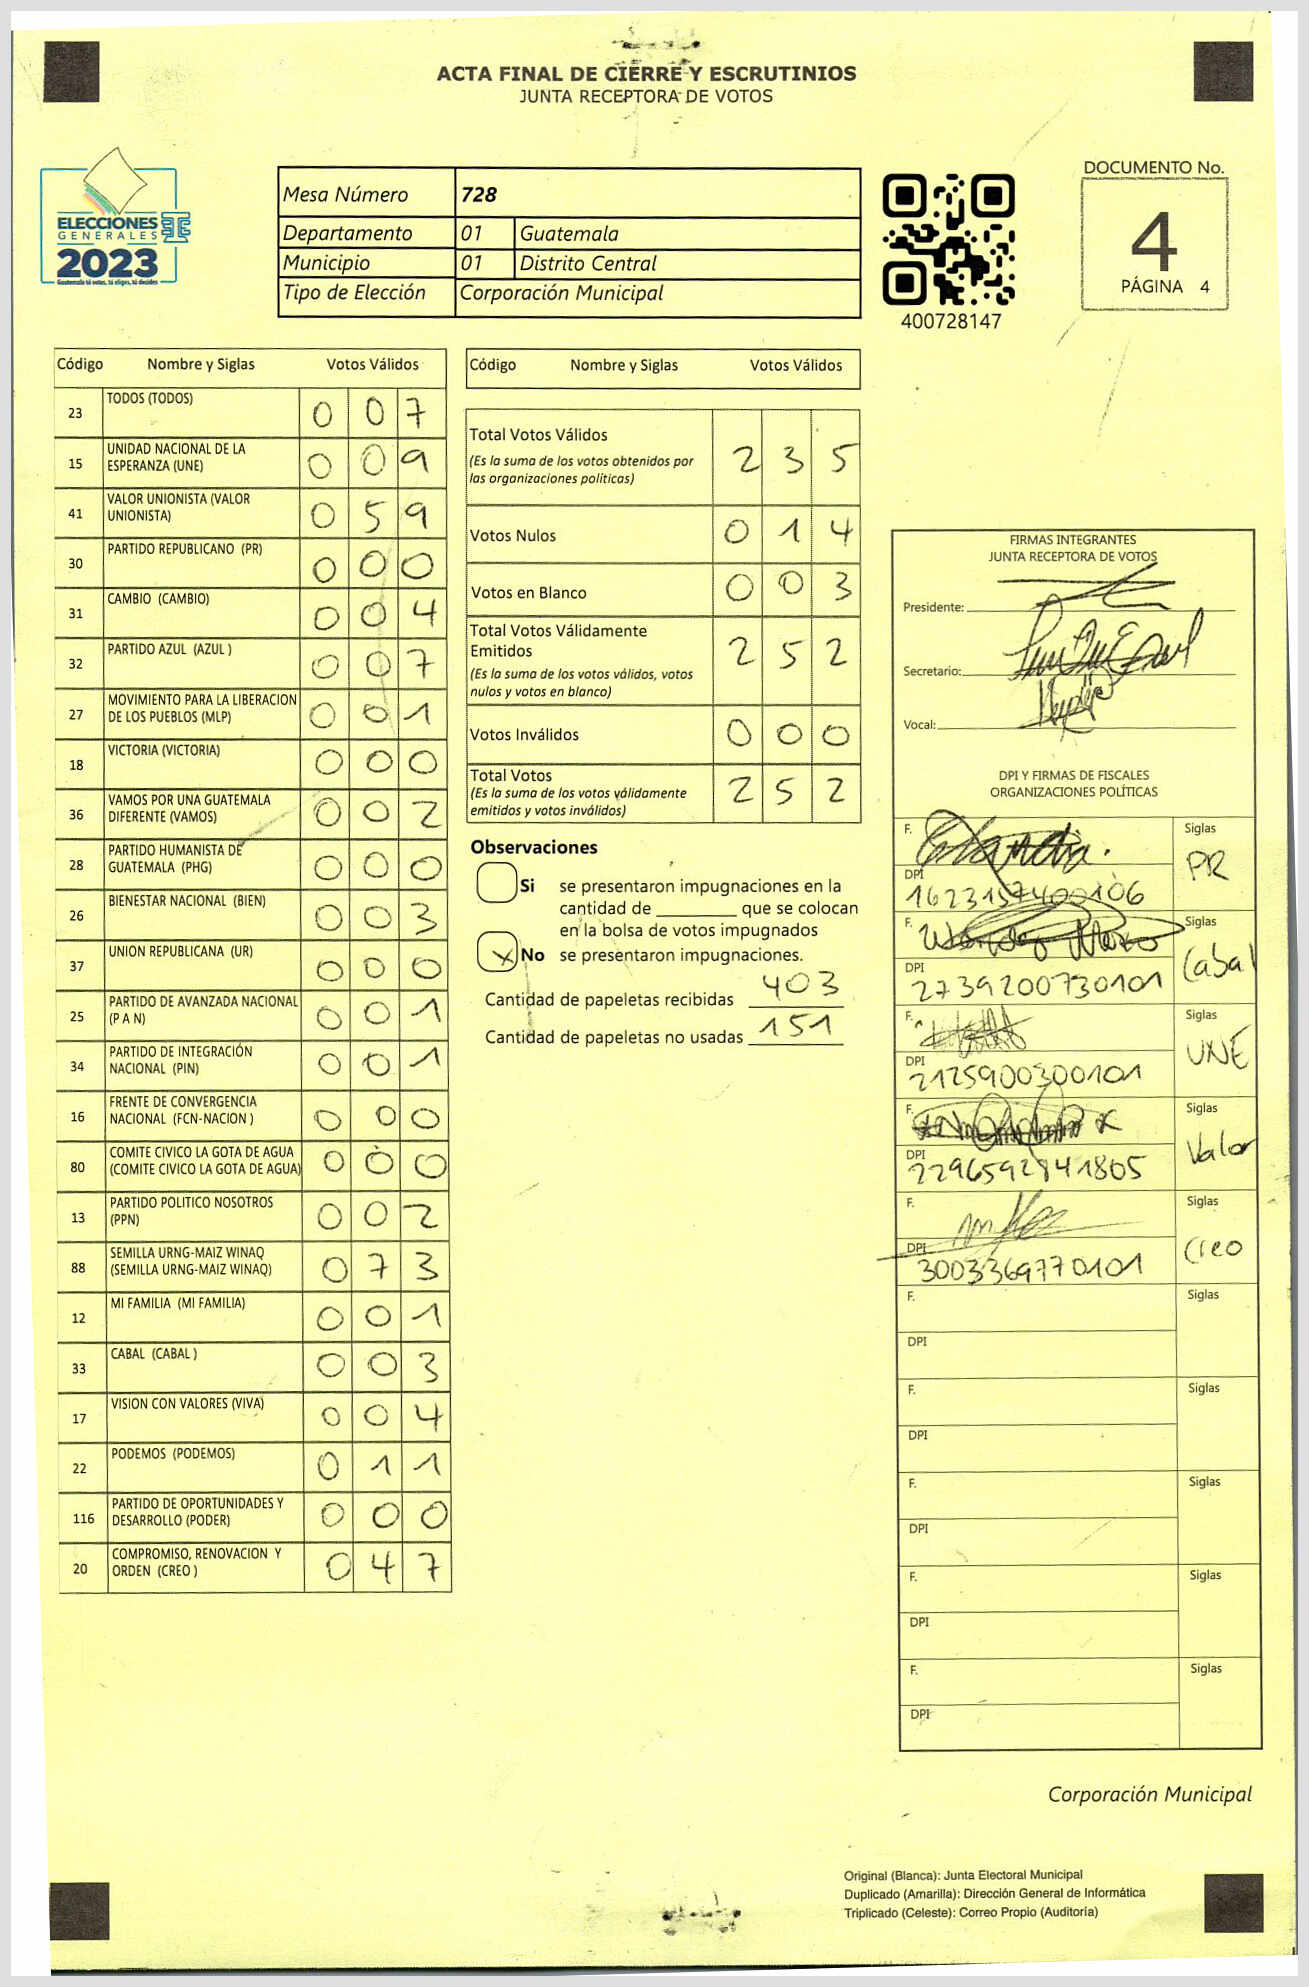 ACTA FINAL DE CIERRE Y ESCRUTINIOS
JUNTA RECEPTORA DE VOTOS
ELECCIONES
GENERALES
2023
Guatemala tú votas, tú eliges, tú decides
Mesa Número 728
Departamento 01 Guatemala
Municipio 01 Distrito Central
Tipo de Elección Corporación Municipal
400728147
DOCUMENTO No.
4
PÁGINA 4
Código Nombre y Siglas Votos Válidos
23 TODOS (TODOS) 0 0 7
15 UNIDAD NACIONAL DE LA ESPERANZA (UNE) 0 0 9
41 VALOR UNIONISTA (VALOR UNIONISTA) 0 5 9
30 PARTIDO REPUBLICANO (PR) 0 0 0
31 CAMBIO (CAMBIO) 0 0 4
32 PARTIDO AZUL (AZUL ) 0 0 7
27 MOVIMIENTO PARA LA LIBERACION DE LOS PUEBLOS (MLP) 0 0 1
18 VICTORIA (VICTORIA) 0 0 0
36 VAMOS POR UNA GUATEMALA DIFERENTE (VAMOS) 0 0 2
28 PARTIDO HUMANISTA DE GUATEMALA (PHG) 0 0 0
26 BIENESTAR NACIONAL (BIEN) 0 0 3
37 UNION REPUBLICANA (UR) 0 0 0
25 PARTIDO DE AVANZADA NACIONAL (P A N) 0 0 1
34 PARTIDO DE INTEGRACIÓN NACIONAL (PIN) 0 0 1
16 FRENTE DE CONVERGENCIA NACIONAL (FCN-NACION ) 0 0 0
80 COMITE CIVICO LA GOTA DE AGUA (COMITE CIVICO LA GOTA DE AGUA) 0 0 0
13 PARTIDO POLITICO NOSOTROS (PPN) 0 0 2
88 SEMILLA URNG-MAIZ WINAQ (SEMILLA URNG-MAIZ WINAQ) 0 7 3
12 MI FAMILIA (MI FAMILIA) 0 0 1
33 CABAL (CABAL ) 0 0 3
17 VISION CON VALORES (VIVA) 0 0 4
22 PODEMOS (PODEMOS) 0 1 1
116 PARTIDO DE OPORTUNIDADES Y DESARROLLO (PODER) 0 0 0
20 COMPROMISO, RENOVACION Y ORDEN (CREO ) 0 4 7
Código Nombre y Siglas Votos Válidos
Total Votos Válidos 2 3 5
(Es la suma de los votos obtenidos por
las organizaciones políticas)
Votos Nulos 0 1 4
Votos en Blanco 0 0 3
Total Votos Válidamente
Emitidos 2 5 2
(Es la suma de los votos válidos, votos
nulos y votos en blanco)
Votos Inválidos 0 0 0
Total Votos 2 5 2
(Es la suma de los votos válidamente
emitidos y votos inválidos)
Observaciones
Si se presentaron impugnaciones en la
cantidad de ________ que se colocan
en la bolsa de votos impugnados
X No se presentaron impugnaciones.
Cantidad de papeletas recibidas 403
Cantidad de papeletas no usadas 151
FIRMAS INTEGRANTES
JUNTA RECEPTORA DE VOTOS
Presidente:
Secretario:
Vocal:
DPI Y FIRMAS DE FISCALES
ORGANIZACIONES POLÍTICAS
F. Siglas PR
DPI 1623157400106
F. Siglas Cabal
DPI 2739200730101
F. Siglas UNE
DPI 2125900300101
F. Siglas Valor
DPI 2296592841805
F. Siglas Creo
DPI 3003369770101
F. Siglas
DPI
F. Siglas
DPI
F. Siglas
DPI
F. Siglas
DPI
F. Siglas
DPI
Corporación Municipal
Original (Blanca): Junta Electoral Municipal
Duplicado (Amarilla): Dirección General de Informática
Triplicado (Celeste): Correo Propio (Auditoría)